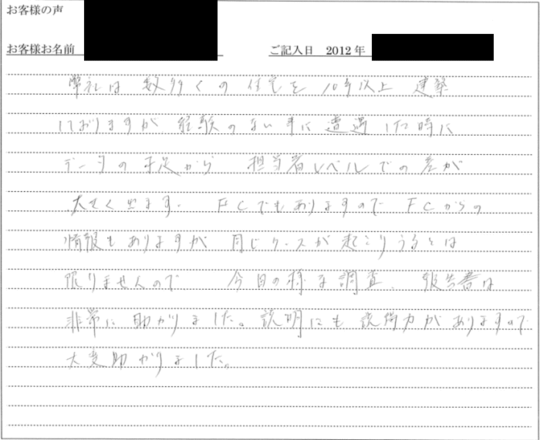 お客様の声
お客様お名前
ご記入日 2012年
弊社は 数多くの 住宅を 10年以上 建築
しておりますが 経験のない事に 遭遇した時に
データの不足から 担当者レベルでの差が
大きく出ます. FCでもありますので FCからの
情報もありますが 同じケースが起こりうるとは
限りませんので 今回の様な調査、報告書は
非常に 助かりました。説明にも説得力がありますので
大変助かりました。